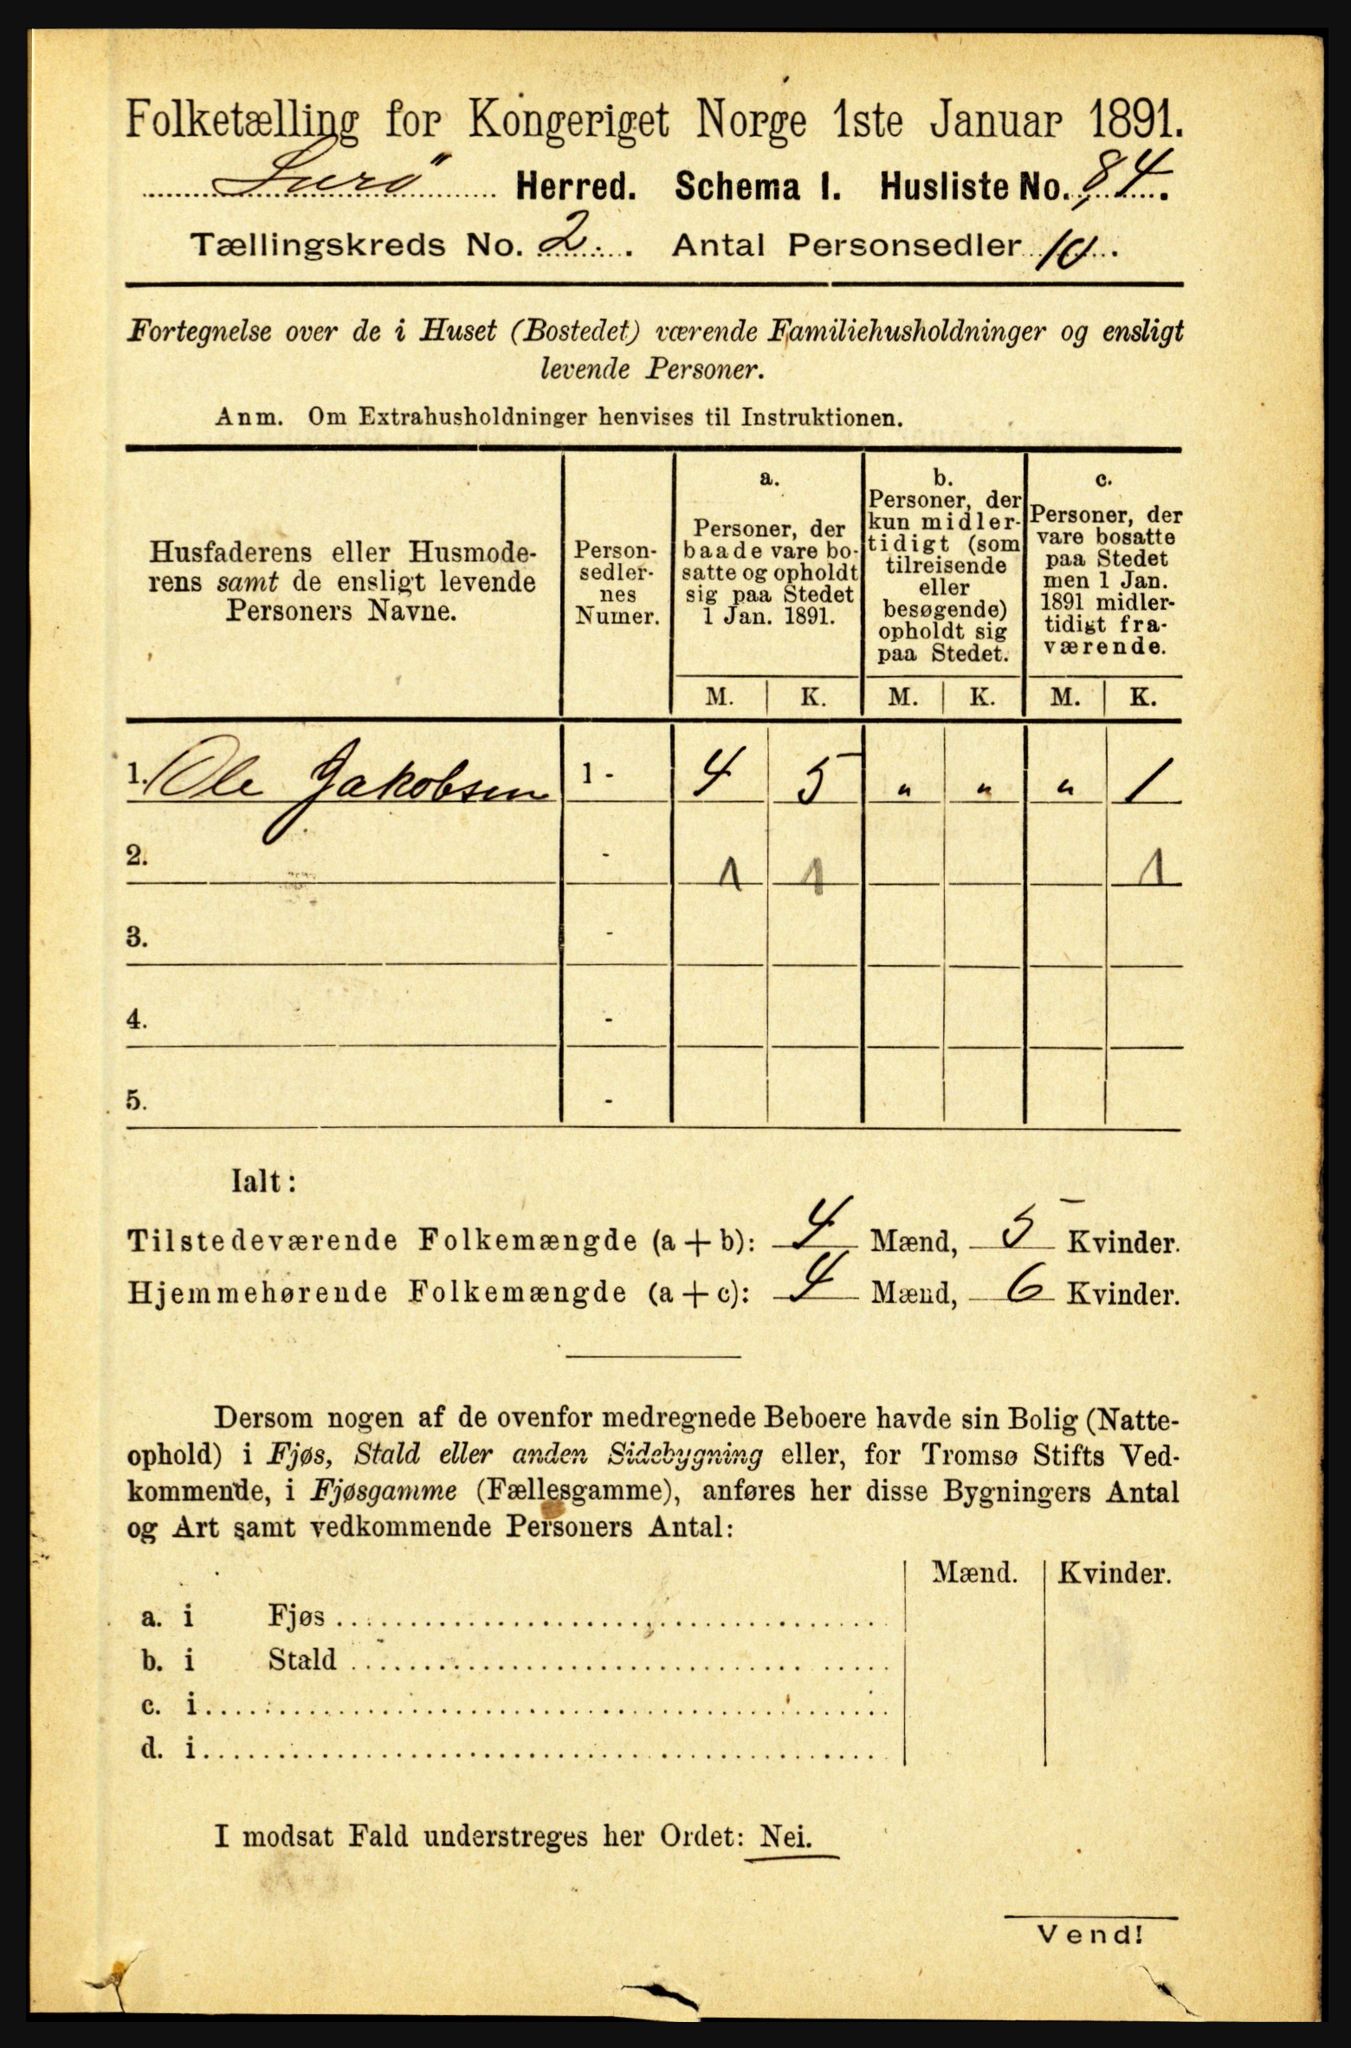 Folketælling for Kongeriget Norge 1ste Januar 1891.
Lurø Herred. Schema I. Husliste No. 84.
Tællingskreds No. 2. Antal Personsedler 10.
Fortegnelse over de i Huset (Bostedet) værende Familiehusholdninger og ensligt
levende Personer.
Anm. Om Extrahusholdninger henvises til Instruktionen.
Husfaderens eller Husmode-
rens samt de ensligt levende
Personers Navne.
Person-
sedler-
nes
Numer.
a.
Personer, der
baade vare bo-
satte og opholdt
sig paa Stedet
1 Jan. 1891.
b.
Personer, der
kun midler-
tidigt (som
tilreisende
eller
besøgende)
opholdt sig
paa Stedet.
c.
Personer, der
vare bosatte
paa Stedet
men 1 Jan.
1891 midler-
tidigt fra-
værende.
M. K. M. K. M. K.
1. Ole Jakobsen 1 - 4 5 " " " 1
2. - 1 1 1
3. -
4. -
5. -
Ialt:
Tilstedeværende Folkemængde (a + b): 4 Mænd, 5 Kvinder.
Hjemmehørende Folkemængde (a + c): 4 Mænd, 6 Kvinder.
Dersom nogen af de ovenfor medregnede Beboere havde sin Bolig (Natte-
ophold) i Fjøs, Stald eller anden Sidebygning eller, for Tromsø Stifts Ved-
kommende, i Fjøsgamme (Fællesgamme), anføres her disse Bygningers Antal
og Art samt vedkommende Personers Antal:
Mænd. Kvinder.
a. i Fjøs
b. i Stald
c. i
d. i
I modsat Fald understreges her Ordet: Nei.
Vend!